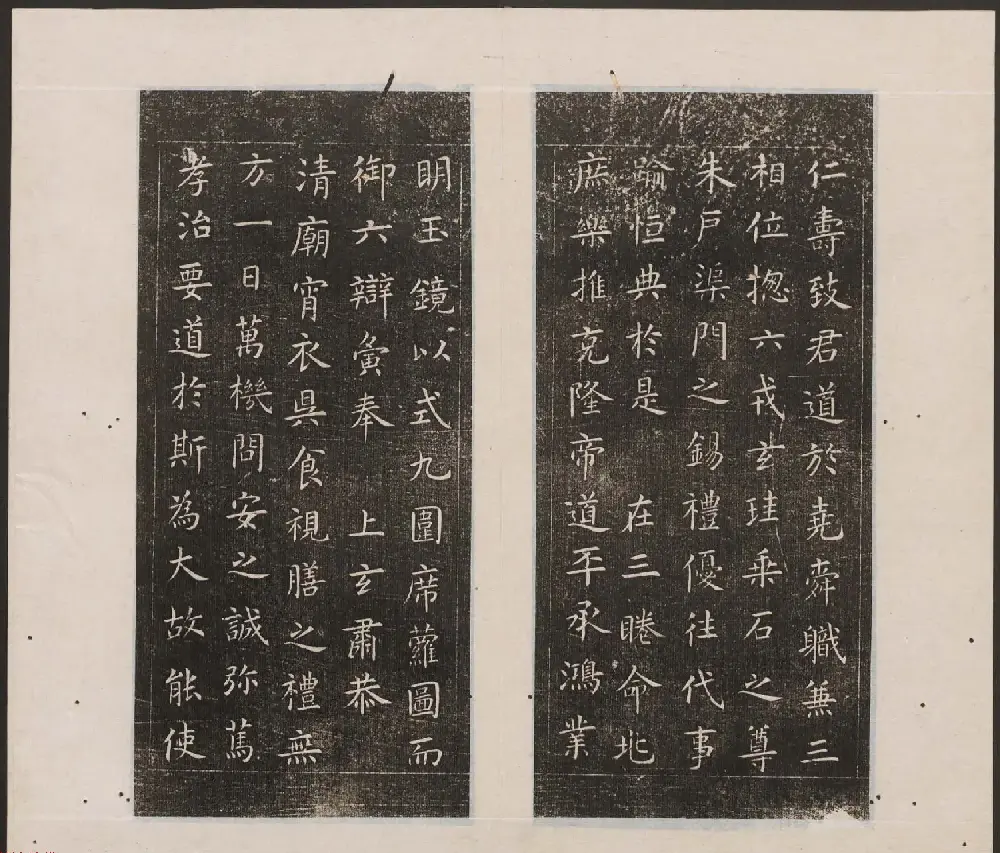 仁壽致君道於堯舜職兼三
相位揔六戎玄珪乗石之尊
朱戸渠門之錫禮優往代事
踰恒典於是 在三睠命兆
庶樂推克隆帝道丕承鴻業
明玉鏡以式九圍席蘿圖而
御六辯寅奉 上玄肅恭
清廟宵衣昃食視膳之禮無
方一日萬機問安之誠弥篤
孝治要道於斯為大故能使